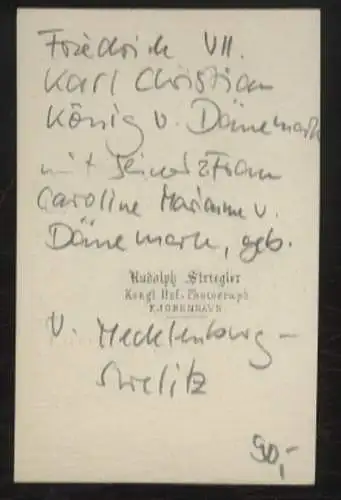 Friedrich VII.
Karl Christian
König v. Dänemark
mit seiner 2 Frau
Caroline Marianne v.
Dänemark, geb.
Rudolph Striegler
Kongl. Hof-Photograph
KJÖBENHAVN
v. Mecklenburg-
Strelitz
90,-